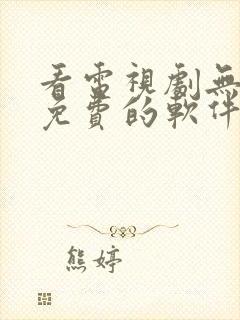 看雷視劇無
免費的軟件
熊婷